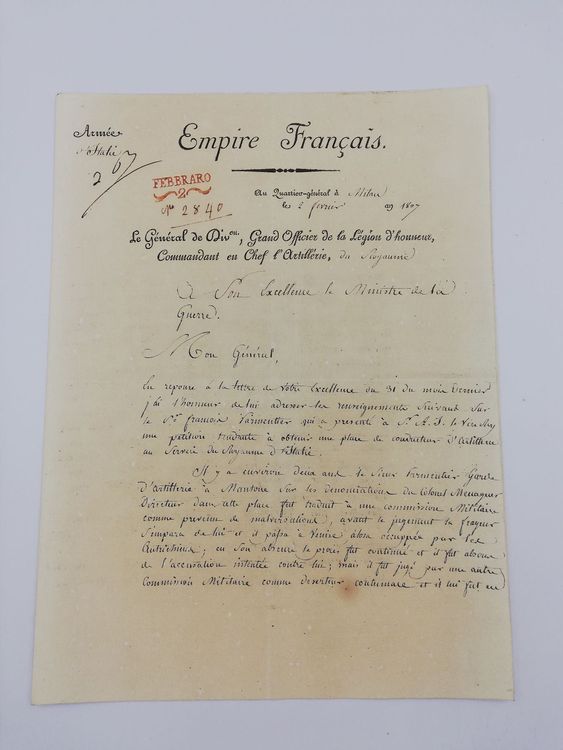 Armée
d'Italie
2
Empire Français.
FEBBRARO
2
No 2840
Au Quartier-général à Milan
le 2 février an 1807
Le Général de Divon, Grand Officier de la Légion d'honneur,
Commandant en Chef l'Artillérie, du Royaume
A Son Excellence le Ministre de la
Guerre.
Mon Général,
En reponse à la lettre de Votre Excellence du 31 du mois dernier
j'ai l'honneur de lui adresser les renseignements Suivant Sur
le Sr. francois Parmentier qui a presenté à S. A. I. le Vice Roy
une petition tendante à obtenir une place de conducteur d'Artillerie
au Service du Royaume d'Italie.
Il y a environ deux ans le Sieur Parmentier Garde
d'artillerie à Mantoue Sur les dénonciations du Colonel
Directeur dans cette place fut traduit à une commission Militaire
comme prevenu de malversations, avant le jugement la frayeur
S'empara de lui et il passa à Venise alors occuppée par les
Autrichiens; en Son absence le procés fut continué et il fut absous
de l'accusation intentée contre lui; mais il fut jugé par une autre
Commission Militaire comme deserteur contumace et il lui fut en